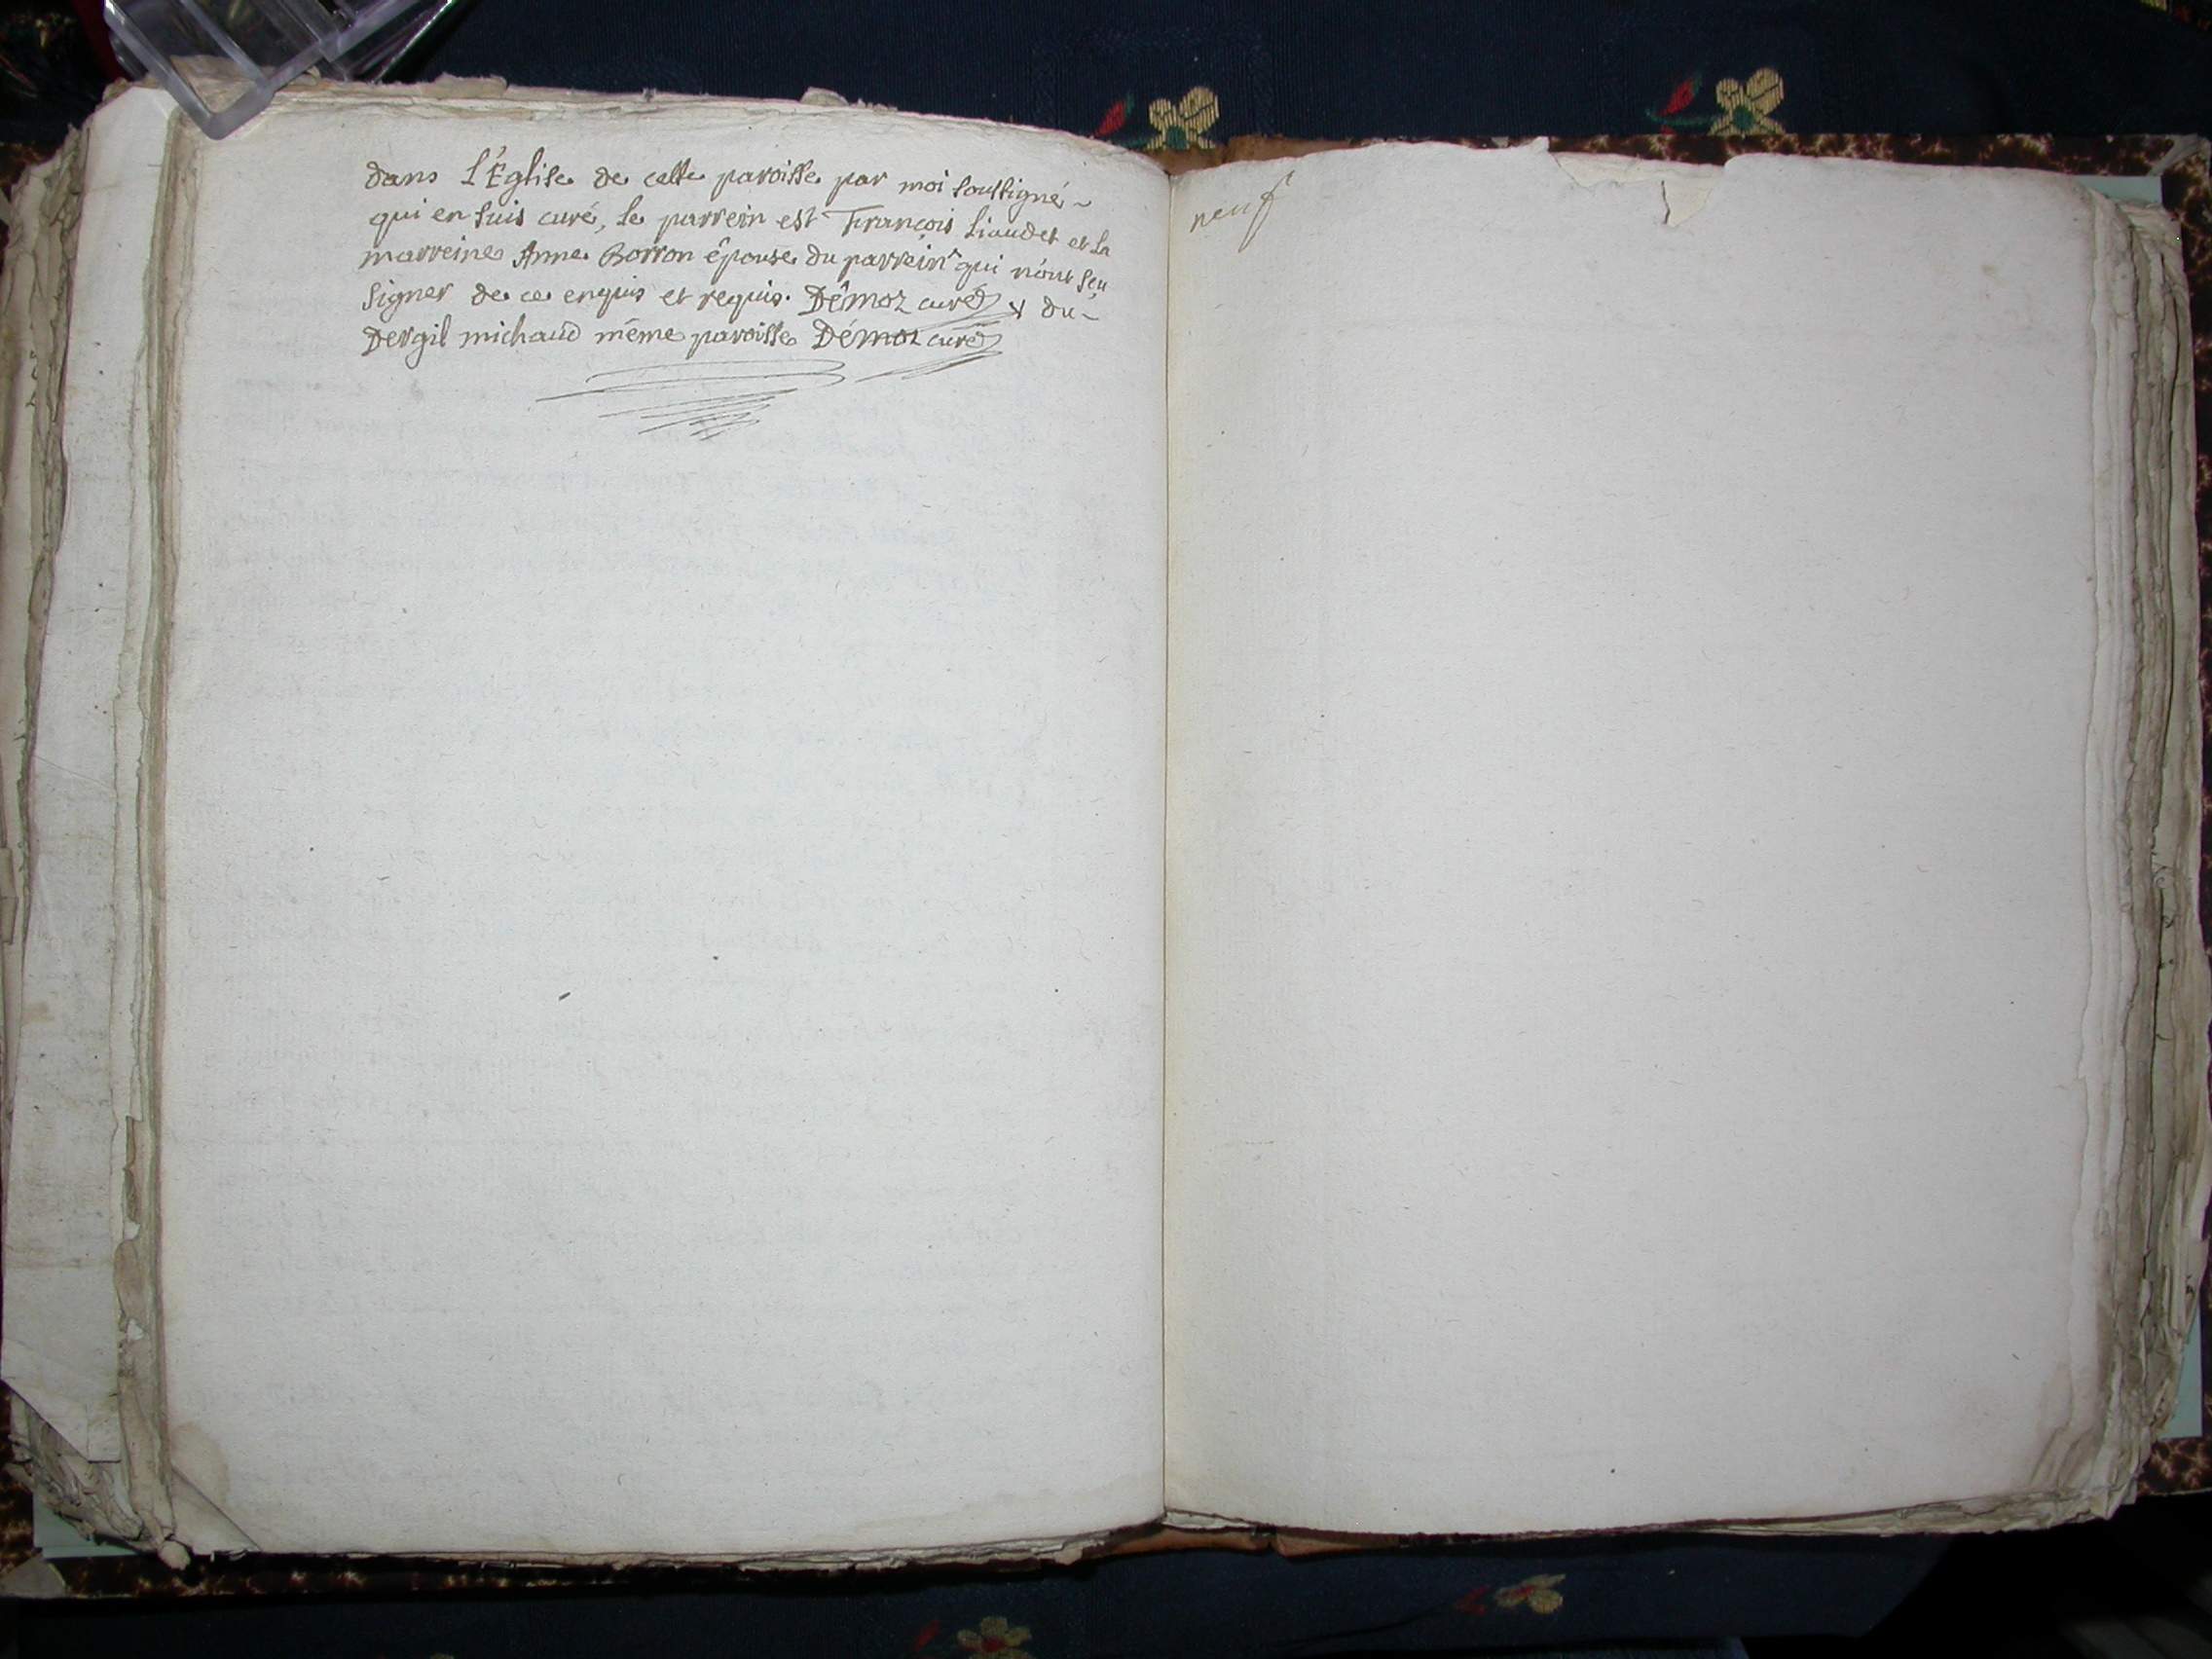 dans L'Église de cette paroisse par moi soussigné -
qui en suis curé, le parrein est François Liaudet et la
marreine Anne Borron épouse du parrein + qui n'ont seu
signer de ce enquis et requis. Démoz curé + du -
Dergil michaud même paroisse Démoz curé
neuf